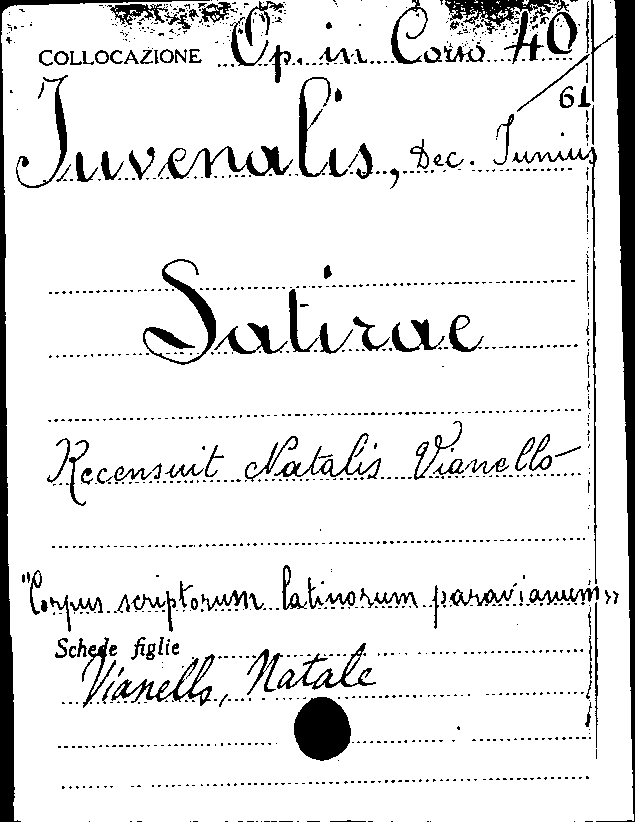 COLLOCAZIONE Op. in Corso 40
61
Juvenalis, Dec. Junius
Satirae
Recensuit Natalis Vianello
"Corpus scriptorum latinorum paravianum"
Schede figlie
Vianello, Natale